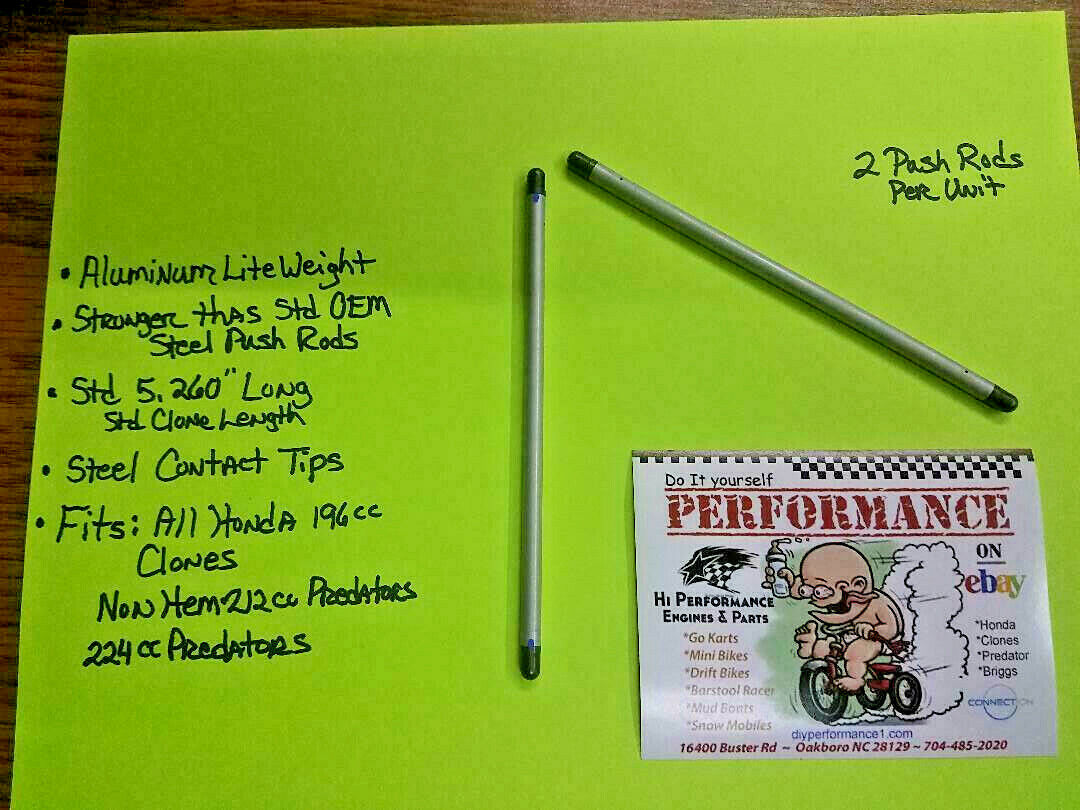 2 Push Rods
Per Unit
• Aluminum Lite Weight
• Stronger than Std OEM
Steel Push Rods
• Std 5.260" Long
Std Clone Length
• Steel Contact Tips
• Fits: All Honda 196cc
Clones
Non Hemi 212cc Predators
224cc Predators
Do It yourself
PERFORMANCE
ON
ebay
HI PERFORMANCE
ENGINES & PARTS
*Go Karts
*Mini Bikes
*Drift Bikes
*Barstool Racer
*Mud Boats
*Snow Mobiles
*Honda
*Clones
*Predator
*Briggs
CONNECTION
diyperformance1.com
16400 Buster Rd ~ Oakboro NC 28129 ~ 704-485-2020